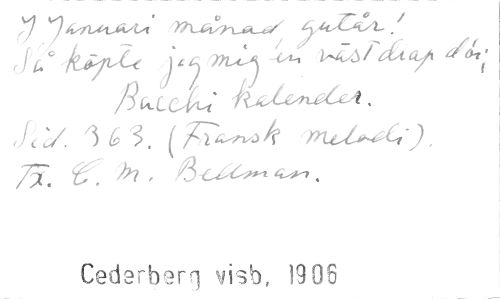 I Januari månad, gutår!
Så köpte jag mig en väst drap d'or,
Bacchi kalender.
Sid. 363. (Fransk melodi).
Tx. C. M. Bellman.
Cederberg visb, 1906